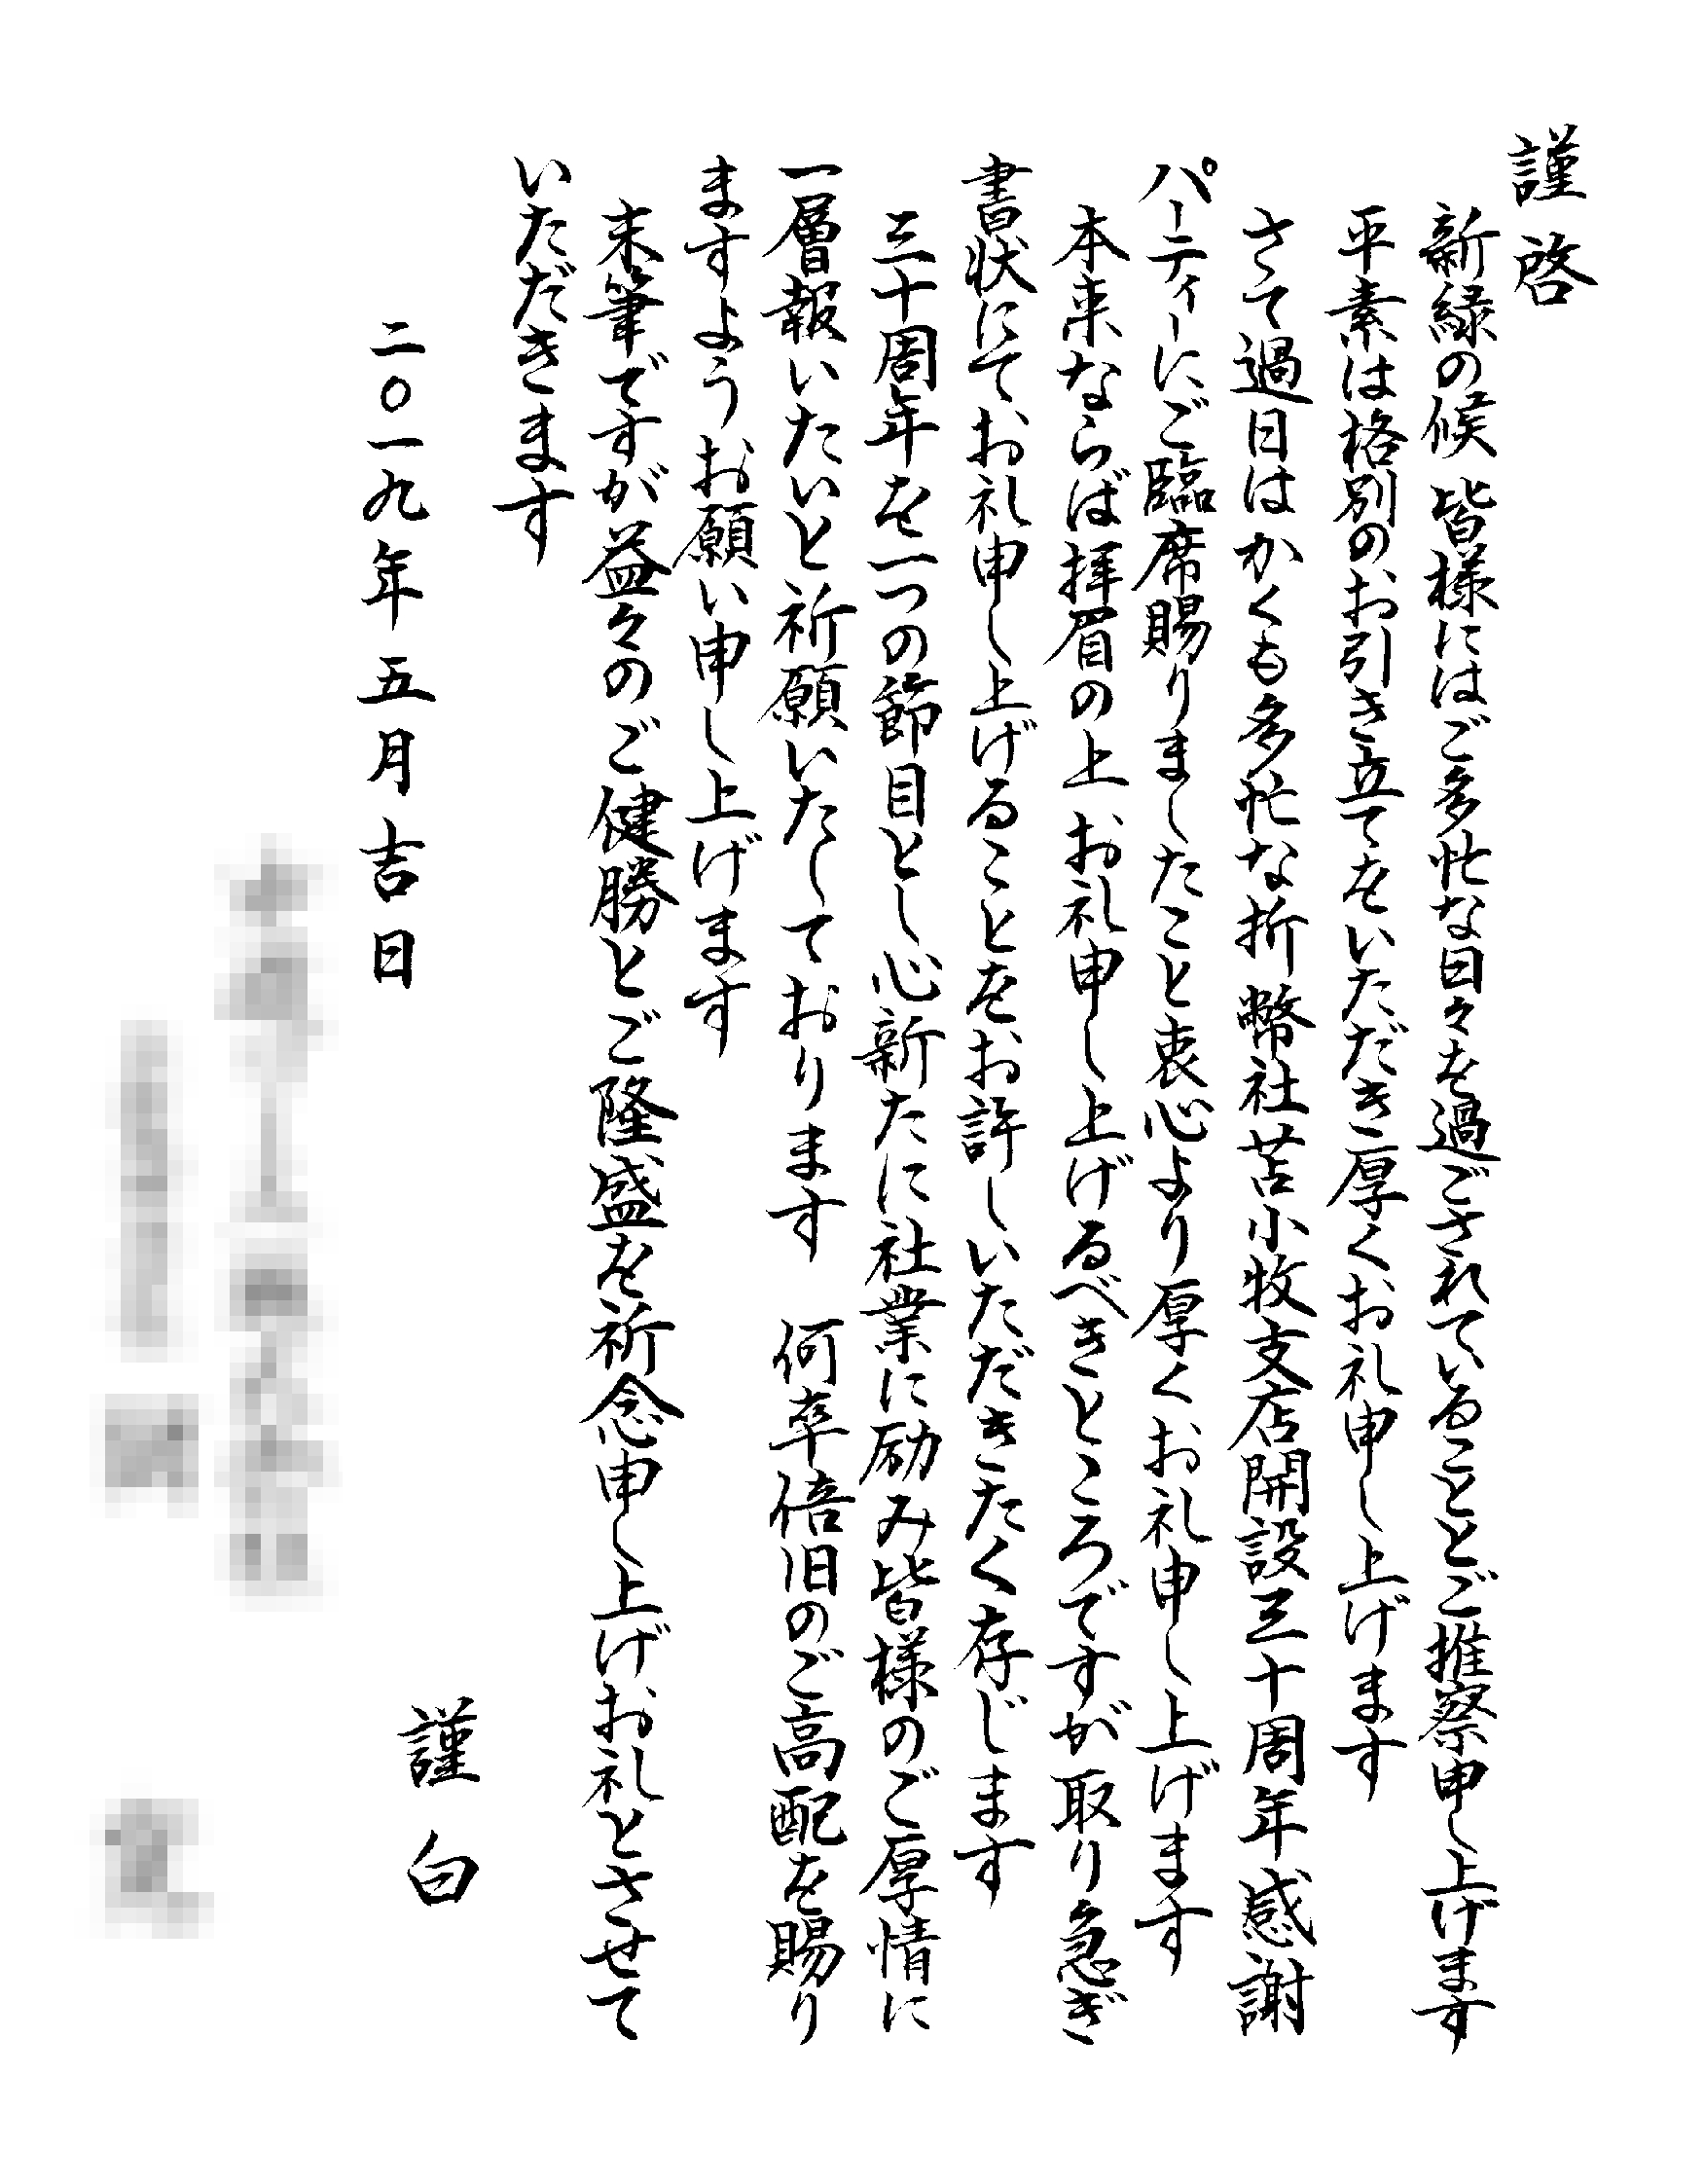 謹啓
新緑の候 皆様にはご多忙な日々を過ごされていることとご推察申し上げます
平素は格別のお引き立てをいただき厚くお礼申し上げます
さて過日はかくも多忙な折 幣社苫小牧支店開設三十周年感謝
パーティーにご臨席賜りましたこと衷心より厚くお礼申し上げます
本来ならば拝眉の上 お礼申し上げるべきところですが取り急ぎ
書状にてお礼申し上げることをお許しいただきたく存じます
三十周年を一つの節目とし心新たに社業に励み皆様のご厚情に
一層報いたいと祈願いたしております 何卒倍旧のご高配を賜り
ますようお願い申し上げます
末筆ですが益々のご健勝とご隆盛を祈念申し上げお礼とさせて
いただきます
謹白
二〇一九年五月吉日